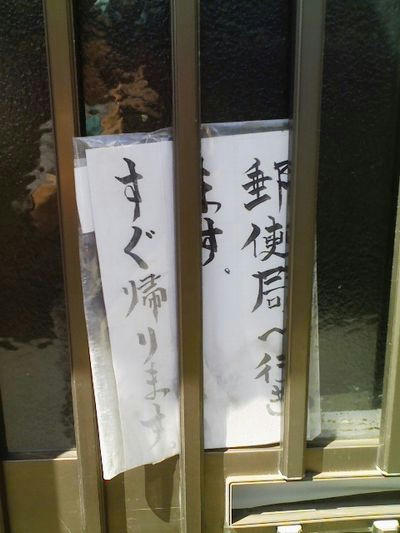 郵便局へ行き
ます。
すぐ帰ります。